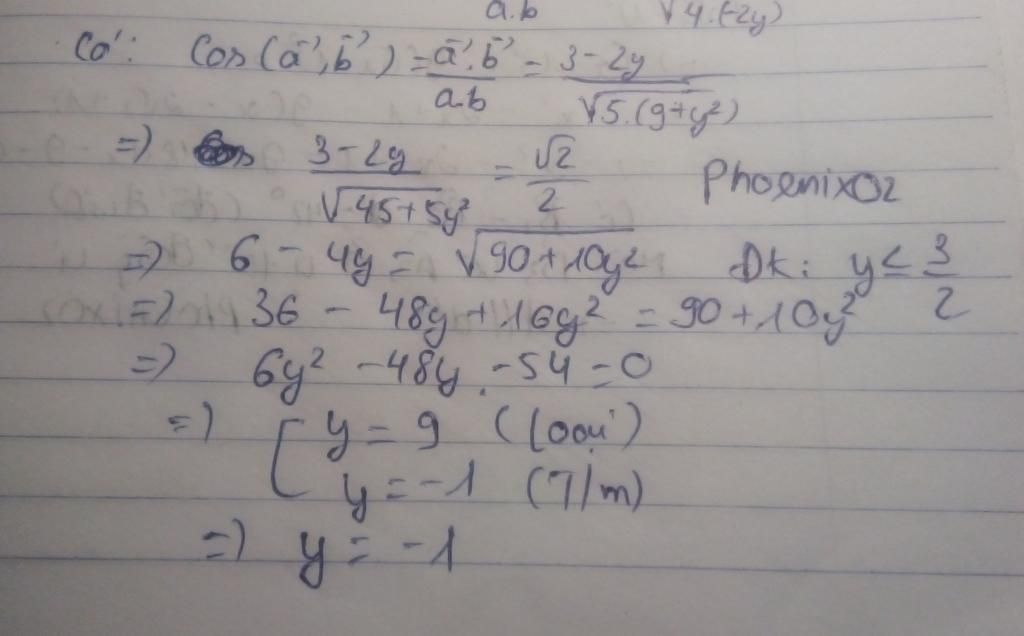 a.b √4.(-2y)
Có: Cos(a⃗, b⃗) = a⃗.b⃗ / a.b = 3-2y / √5.(9+y²)
=) 3-2y / √45+5y² = √2 / 2 PhoenixO2
=) 6 - 4y = √90+10y² Đk: y ≤ 3/2
=) 36 - 48y + 16y² = 90+10y²
=) 6y² - 48y - 54 = 0
=) [ y = 9 (loại)
y = -1 (T/m)
=) y = -1